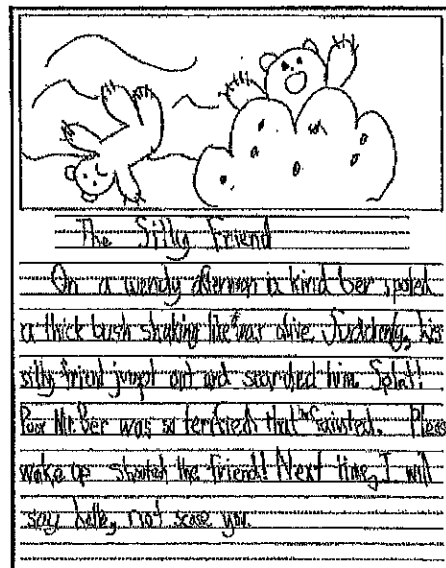 The Silly Friend
On a wendy afternoon a kind ber spoted
a thick bush shaking like it was alive. Suddenly, his
silly friend jumpt out and scarded him. Splat!
Poor Mr. Ber was so terrified that he fainted. Pleas
wake up shouted the friend! Next time, I will
say hello, not scare you.